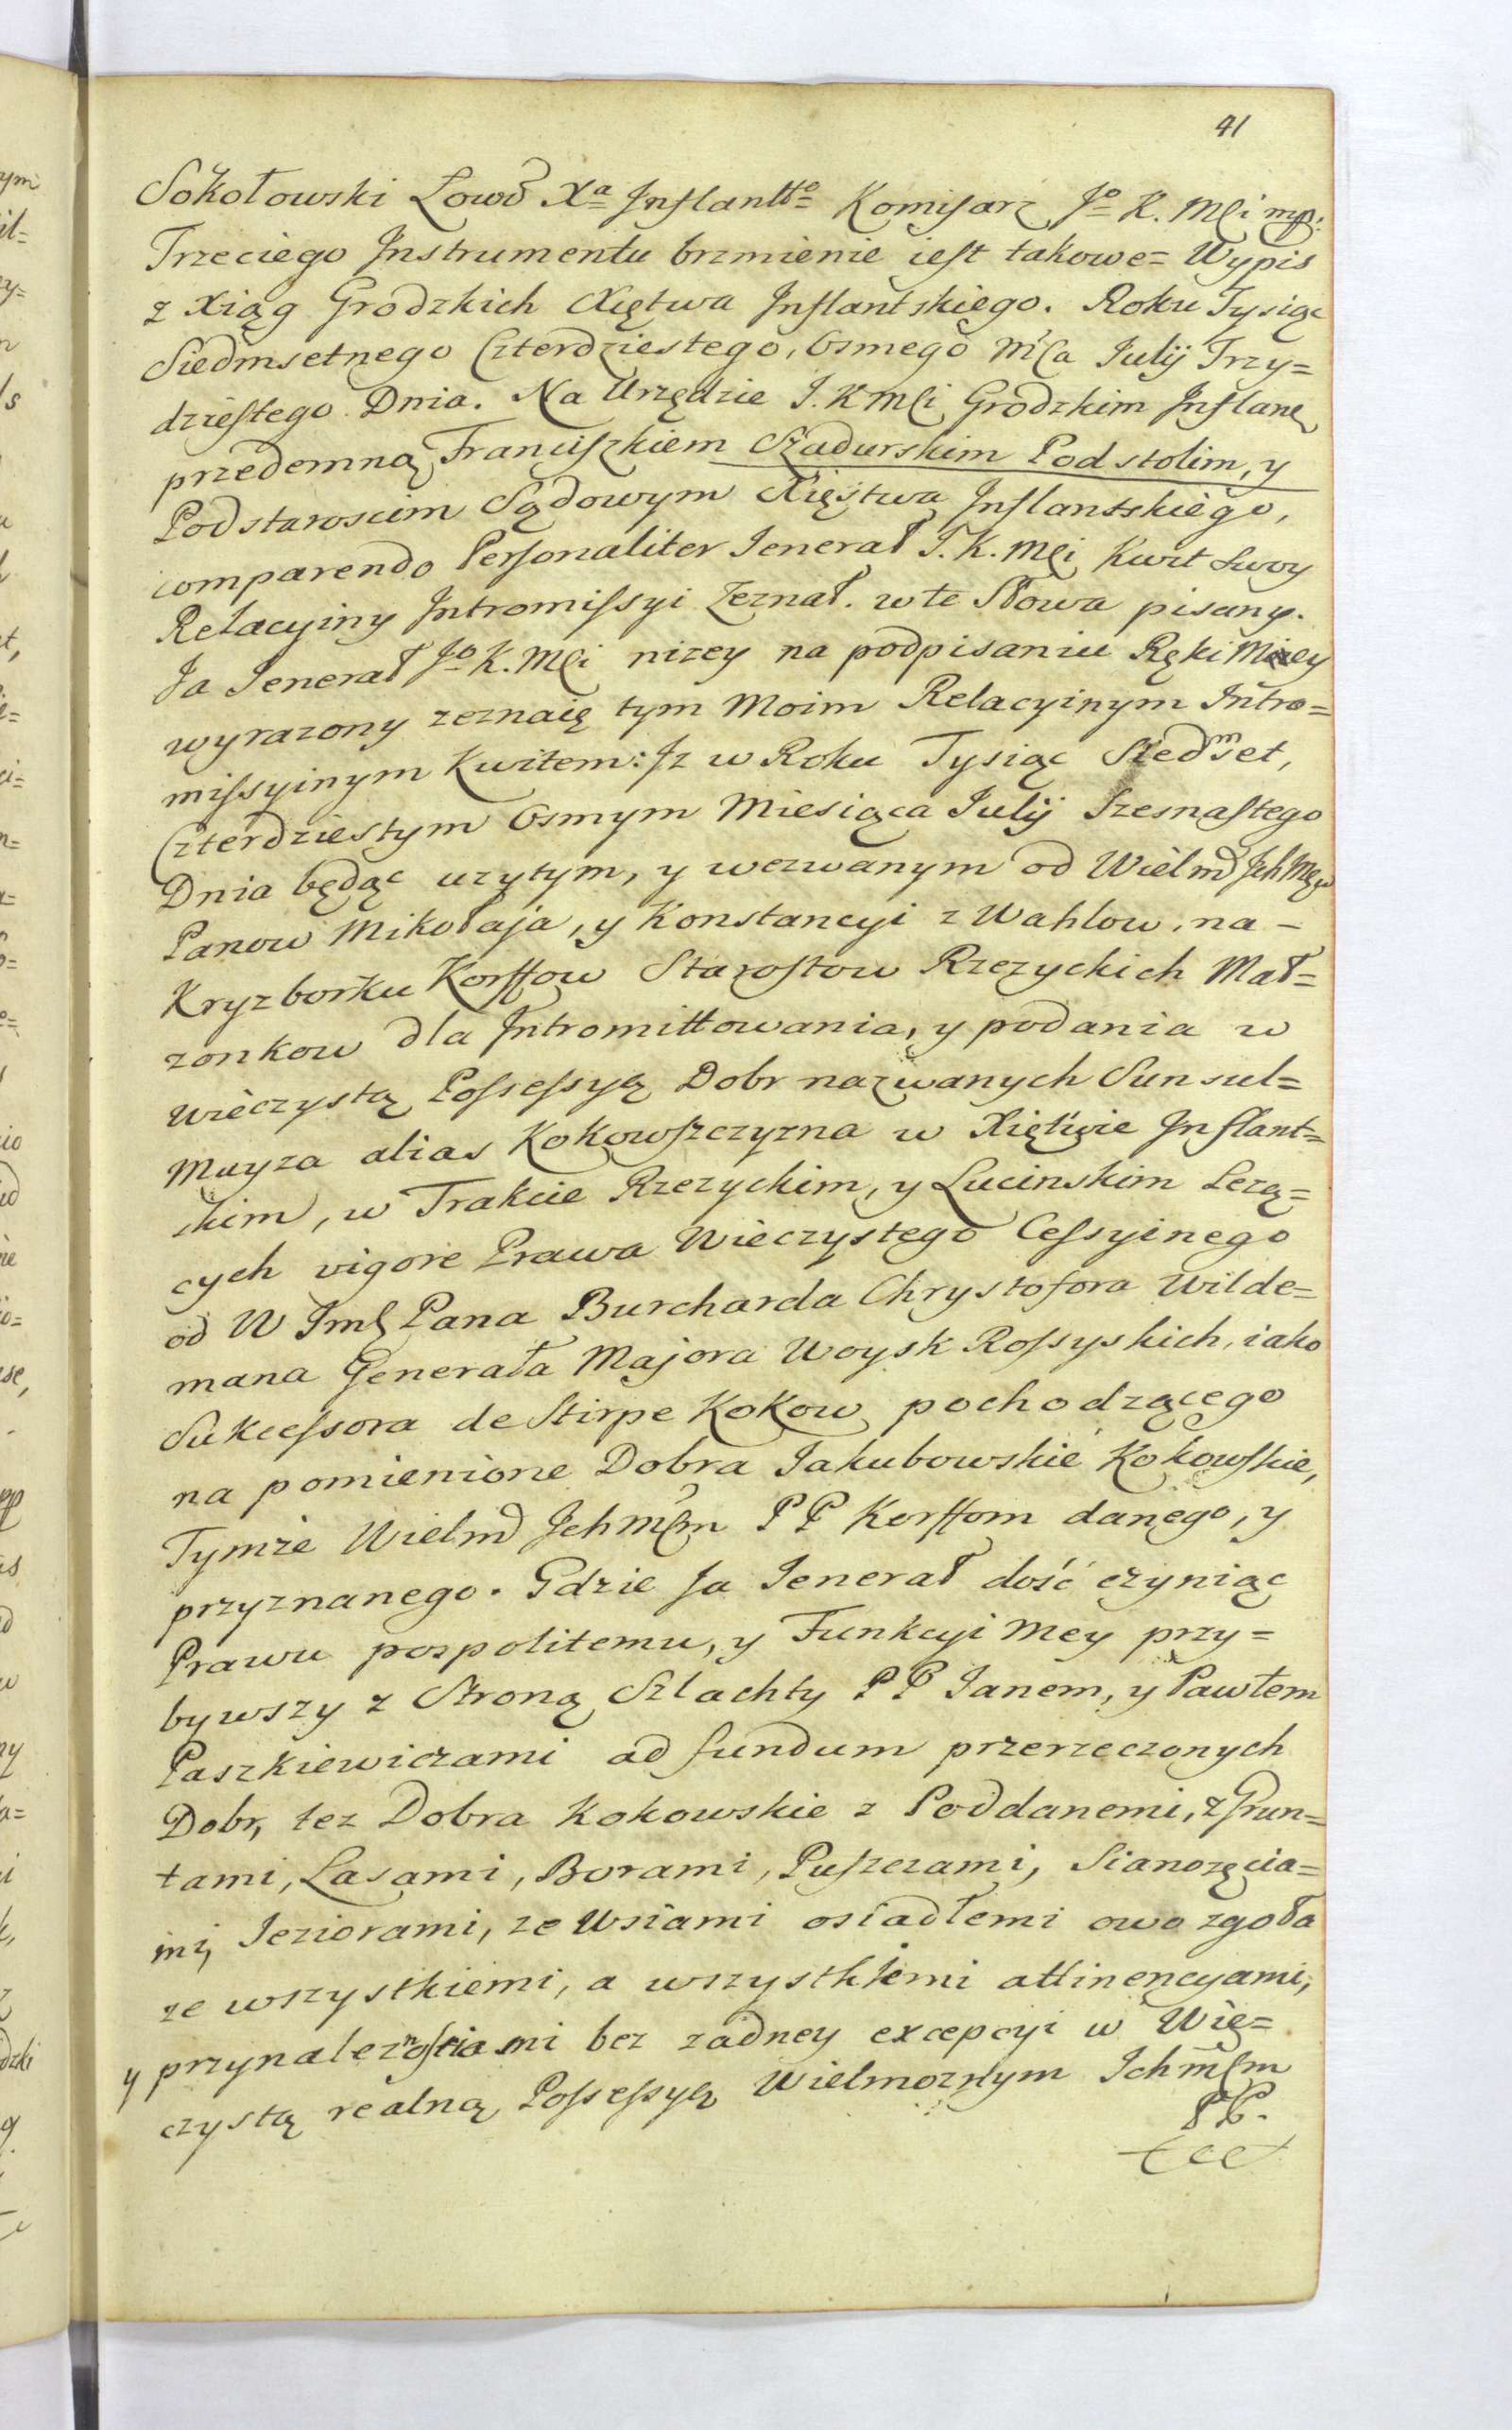 41
Sokołowski Łowc̄ Xa Inflantto Komisarz Jo K. Mci mp.
Trzeciego Instrumentu brzmienie iest takowe= Wypis
z Xiąg Grodzkich Xięţwa Inflantskiego. Roku Tysiąc
Siedmsetnego Czterdziestego, Osmego Mca Iulij Trzy=
dziestego Dnia. Na Urzędzie J. K Mci Grodzkim Inflanc
przedemną Franciszkiem Szadurskim Podstolim, y
Podstaroscim Sądowym Xięstwa Inflantskiego,
comparendo Personaliter Ienerał J. K. Mci Kwit Swoy
Relacyiny Intromissyi Zeznał. w te Słowa pisany.
Ja Ienerał Jo K. Mci nizey na podpisaniu Ręki Miey
wyrazony zeznaię tym Moim Relacyinym Intro=
missyinym Kwitem: Iz w Roku Tysiąc Siedmset,
Czterdziestym Osmym Miesiąca Iulij Szesnastego
Dnia będąc uzytym, y wezwanym od Wielmo Ich Mcw
Panow Mikołaja, y Konstancyi z Wahlow, na-
Kryzborku Korffow Starostow Rzezyckich Mał=
zonkow dla Intromittowania, y podania w
wieczystą Possessyą Dobr nazwanych Sunsul=
Muyza alias Kokowszczyzna w Xięţwie Inflant=
skim, w Trakcie Rzezyckim, y Lucinskim Lezą=
cych vigore Prawa Wieczystego Cessyinego
od W Jmc Pana Burcharda Chrystofora Wilde=
mana Generała Majora Woysk Rossyskich, iako
Sukcessora de Stirpe Kokow pochodzącego
na pomienione Dobra Iakubowskie Kokowskie,
Tymże Wielmo Ichmcm PP Korffom danego, y
przyznanego. Gdzie Ja Ienerał dość czyniąc
Prawu pospolitemu, y Funkcyi Mey przy=
bywszy z Stroną Szlachty PP Ianem, y Pawłem
Paszkiewiczami ad fundum przerzeczonych
Dobr, tez Dobra Kokowskie z Poddanemi, z Grun=
tami, Lasami, Borami, Puszczami, Sianozęcia=
mi, Ieziorami, ze Wsiami osiadłemi owo zgoła
ze wszystkiemi, a wszystkiemi attinencyami,
y przynaleznosciami bez zadney excepcyi w Wie=
czystą realną Possessyą Wielmoznym Ichmcm
PP.